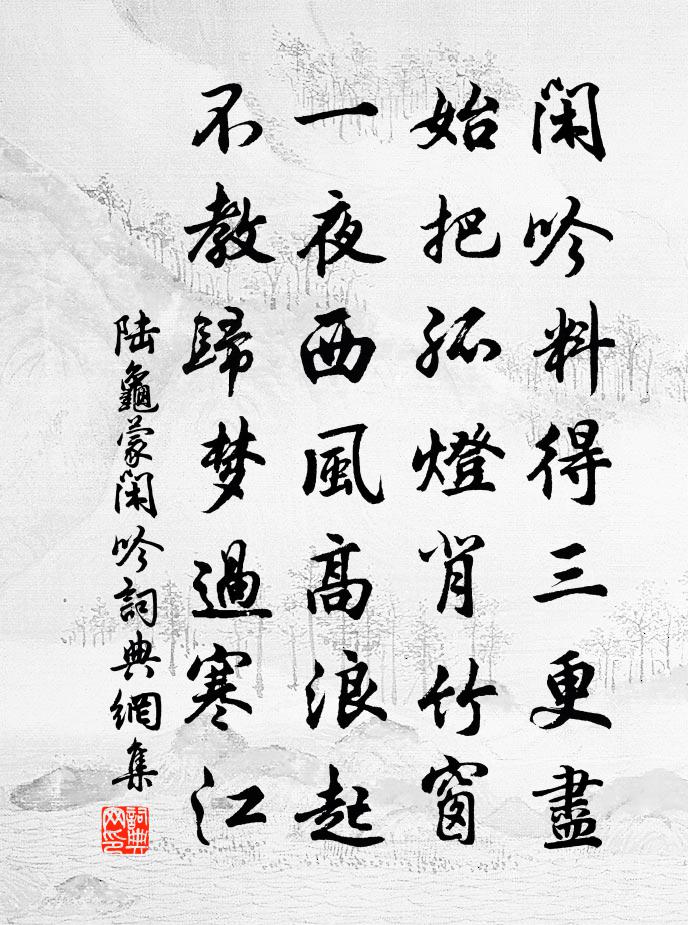 闲吟料得三更盡
始把孤燈背竹窗
一夜西風高浪起
不教歸夢過寒江
陆龜蒙闲吟詞典網集
詞典网印